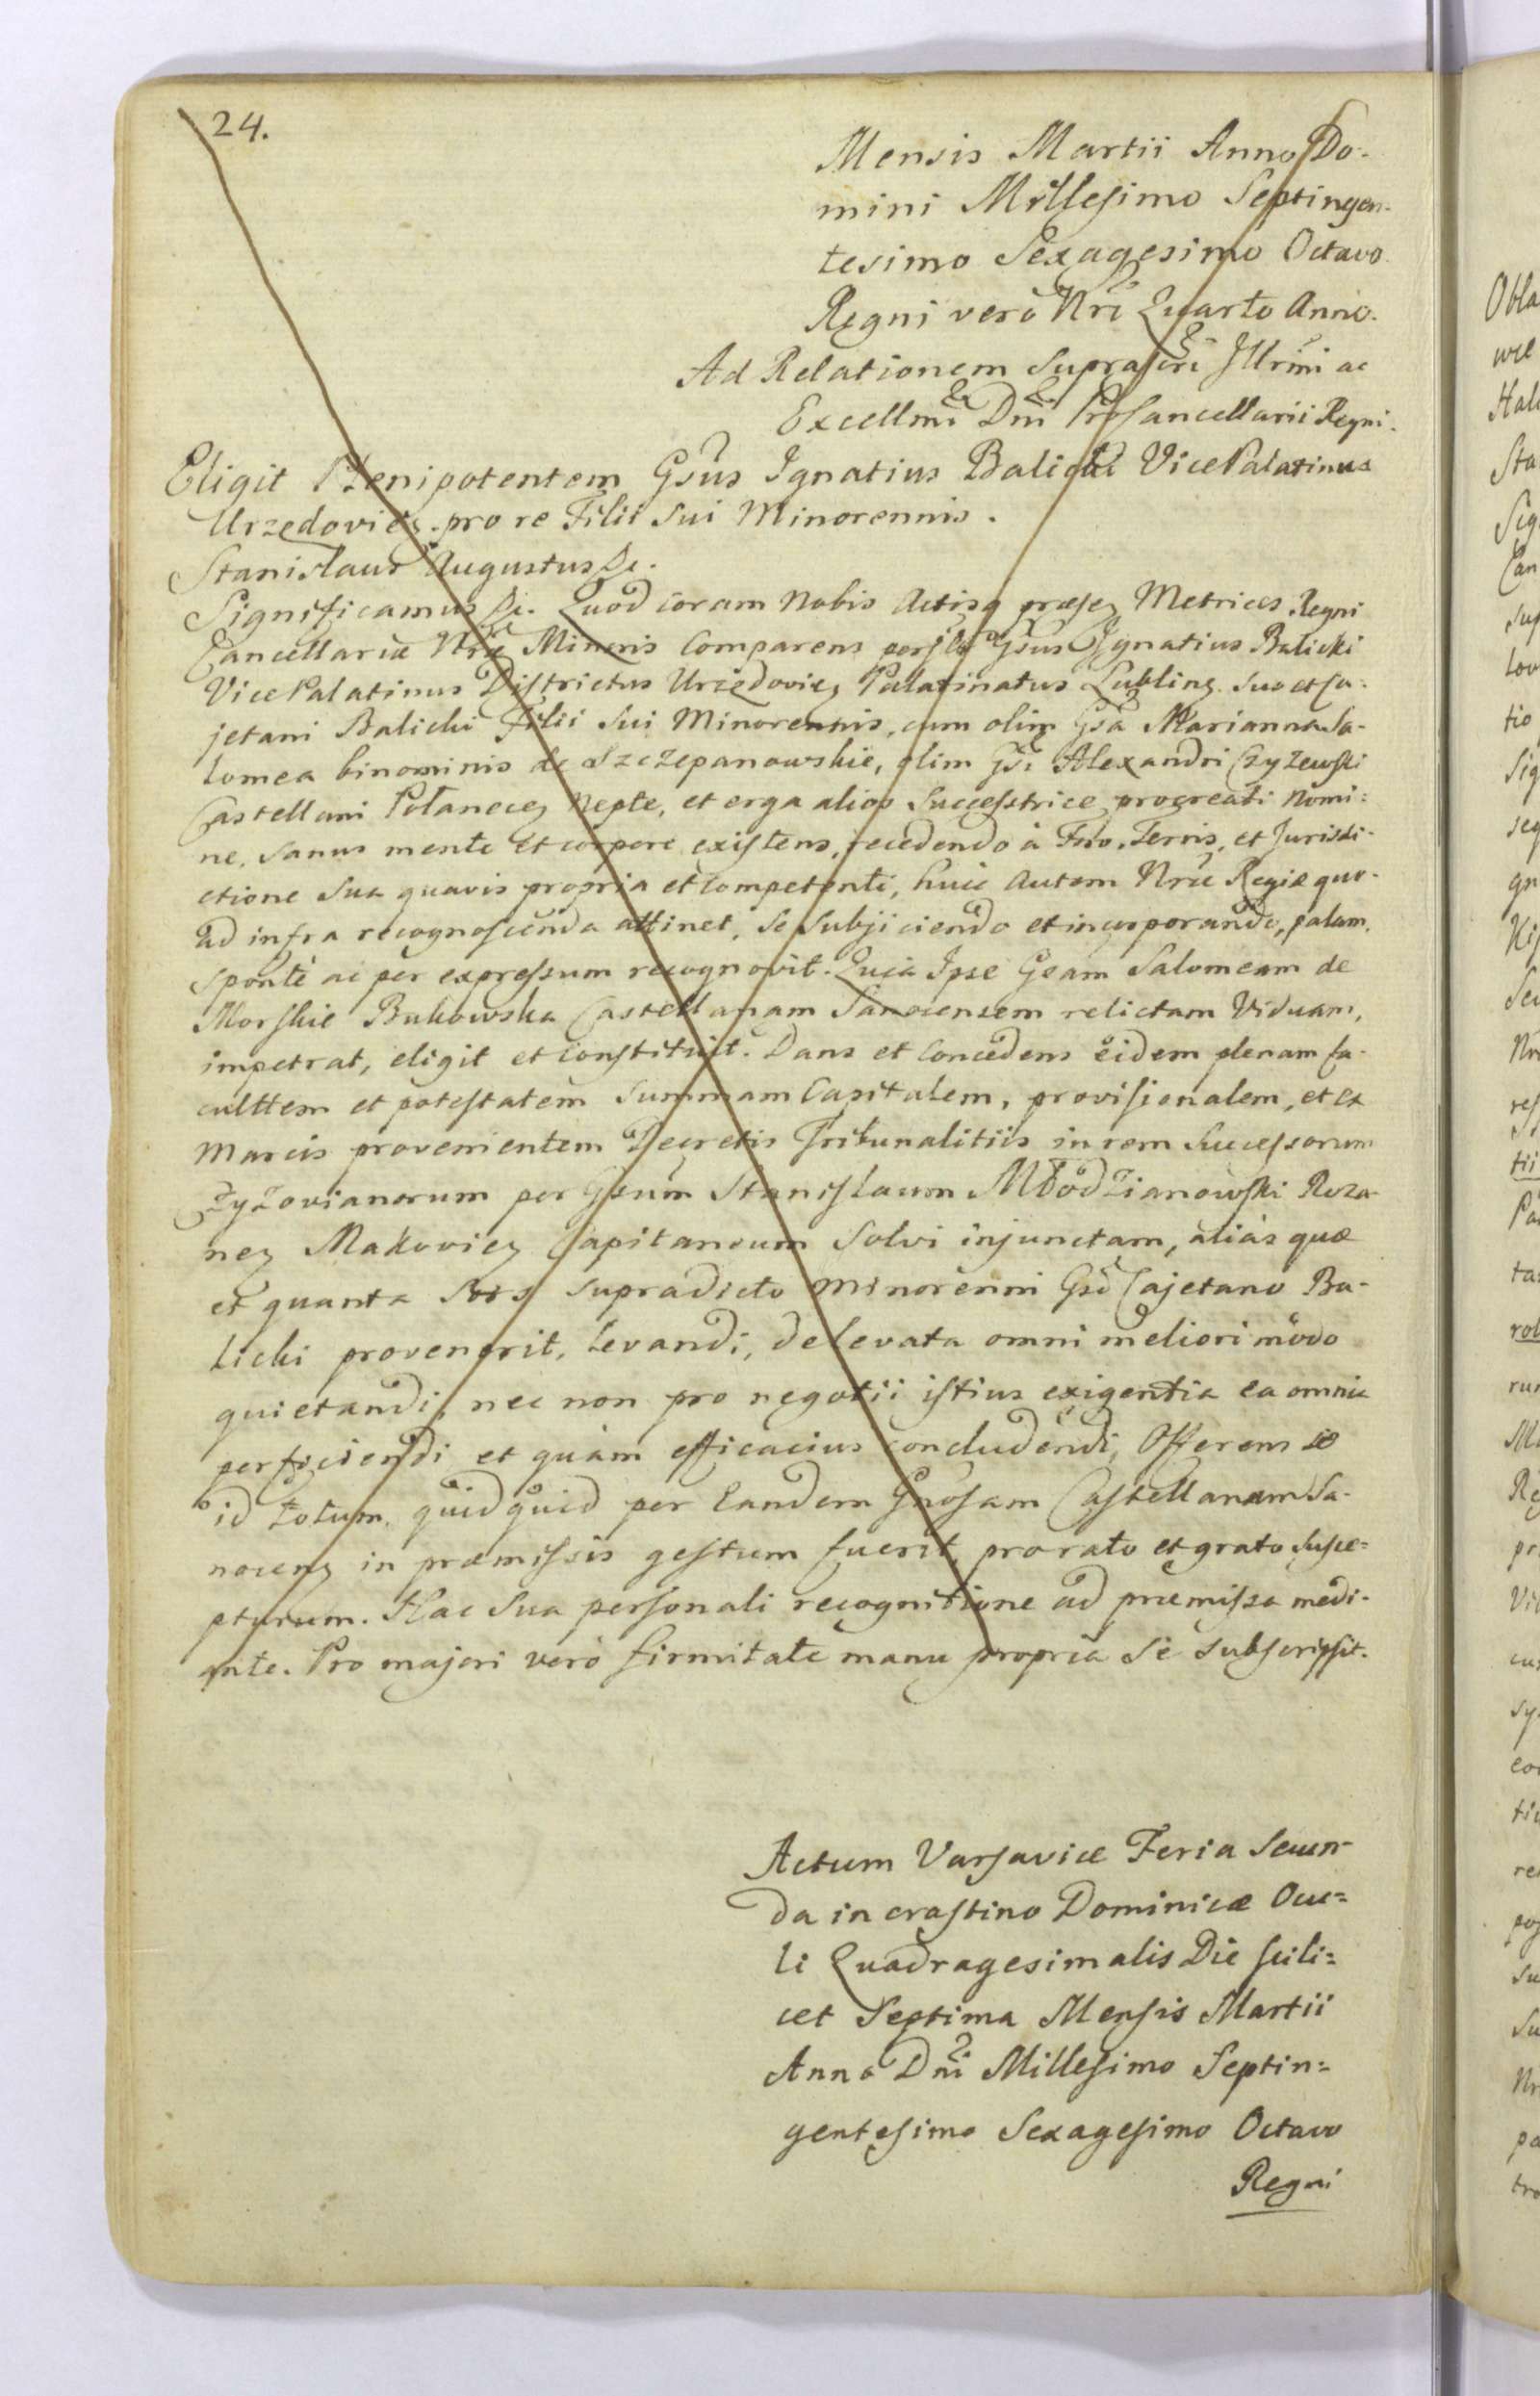 24.
Mensis Martii Anno Do-
mini Millesimo Septingen-
tesimo Sexagesimo Octavo
Regni verò Nri Quarto Anno.
Ad Relationem suprascri Illrmi ac
Excellmi Dni ProCancellarii Regni.
Eligit Plenipotentem Gsus Ignatius Balicki VicePalatinus
Urzędovien. pro re Filii sui Minorennis.
Stanislaus Augustus &c.
Significamus &c. Quod coram Nobis Actisq præsen Metrices Regni
Cancellariæ Nræ Minoris Comparens persltr Gsus Ignatius Balicki
VicePalatinus Districtus Urzędovien Palatinatus Lublinen. suo et Ca-
jetani Balicki Filii sui Minorennis, cum olim Gsa Marianna Sa-
lomea binominis de Szczepanowskie, olim Gsi Alexandri Czyżewski
Castellani Połanecen Nepte, et erga alios Successtrice procreati nomi-
ne, sanus mente et corpore existens, recedendo à Foro, Terris, et Jurisdi-
ctione sua quavis propria et competenti, huic autem Nræ Regiæ quo-
ad infra recognoscenda attinet, se subjiciendo et incorporando, palam,
sponte ac per expressum recognovit. Quia Ipse Gsam Salomeam de
Morskie Bukowska Castellanam Sanocensem relictam Viduam,
impetrat, eligit et constituit. Dans et concedens eidem plenam fa-
culttem et potestatem Summam Capitalem, provisionalem, et ex
Marcis provenientem Decretis Tribunalitiis in rem Successorum
Czyżovianorum per Gsum Stanislaum Młodzianowski Roża-
nen Makovien Capitaneum solvi injunctam, aliàs quæ
et quanta Sors supradicto minorenni Gso Cajetano Ba-
licki provenerit, levandi, de levata omni meliori modo
quietandi, nec non pro negotii istius exigentia ea omnia
perficiendi et quàm efficacius concludendi, Offerens se
id totum, quidquid per Eandem Gnosam Castellanam Sa-
nocens in præmissis gestum fuerit, pro rato et grato susce-
pturum. Hac sua personali recognitione ad præmissa medi-
ante. Pro majori verò firmitate manu propria se subscripsit.
Actum Varsaviæ Feria Secun-
da in crastino Dominicæ Ocu-
li Quadragesimalis Die scili-
cet Septima Mensis Martii
Anno Dni Millesimo Septin-
gentesimo Sexagesimo Octavo
Regni